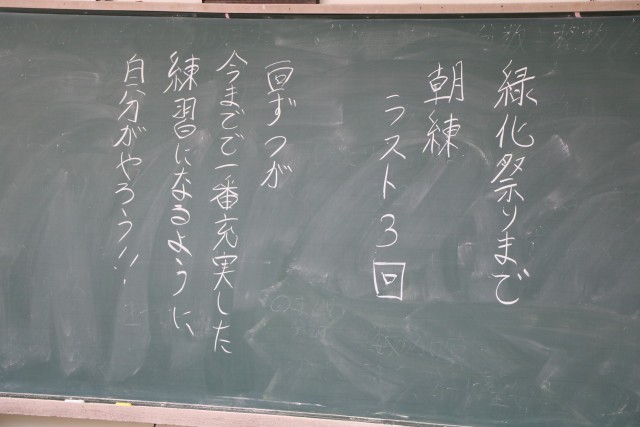 緑化祭りまで
朝練
ラスト3回
一回ずつが
今までで一番充実した
練習になるように、
自分がやろう!!